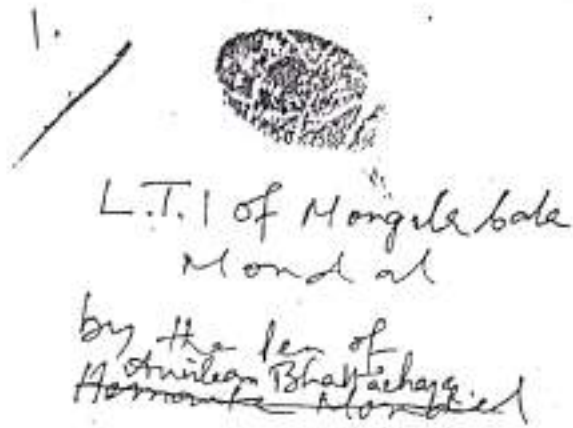 1.
L.T.I of Mongala bala
Mondal
by the Pen of
Anirban Bhattacharya
Mondal